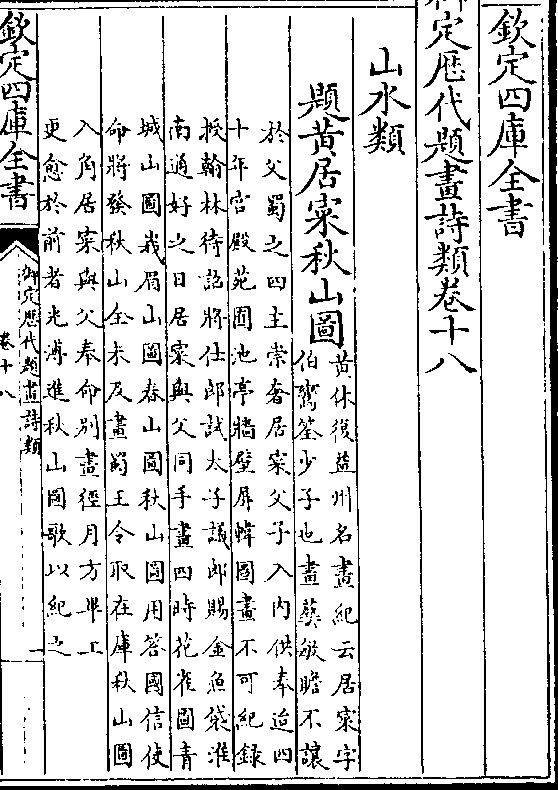 欽定四庫全書
御定歴代題畫詩類卷十八
山水類
題黄居寀秋山圖
黄休復益州名畫紀云居寀字
伯鸞筌少子也畫藝敏贍不讓
於父蜀之四主崇奢居寀父子入内供奉迨四
十年宫殿苑囿池亭牆壁屏幃圖畫不可紀録
授翰林待詔將仕郎試太子議郎賜金魚袋淮
南通好之日居寀與父同手畫四時花雀圖青
城山圖峩眉山圖春山圖秋山圖用答國信使
命將發秋山全未及畫蜀王令取在庫秋山圖
入角居寀與父奉命别畫經月方畢工
更愈於前者光溥進秋山圖歌以紀之
欽定四庫全書
御定歴代題畫詩類
卷十八
一